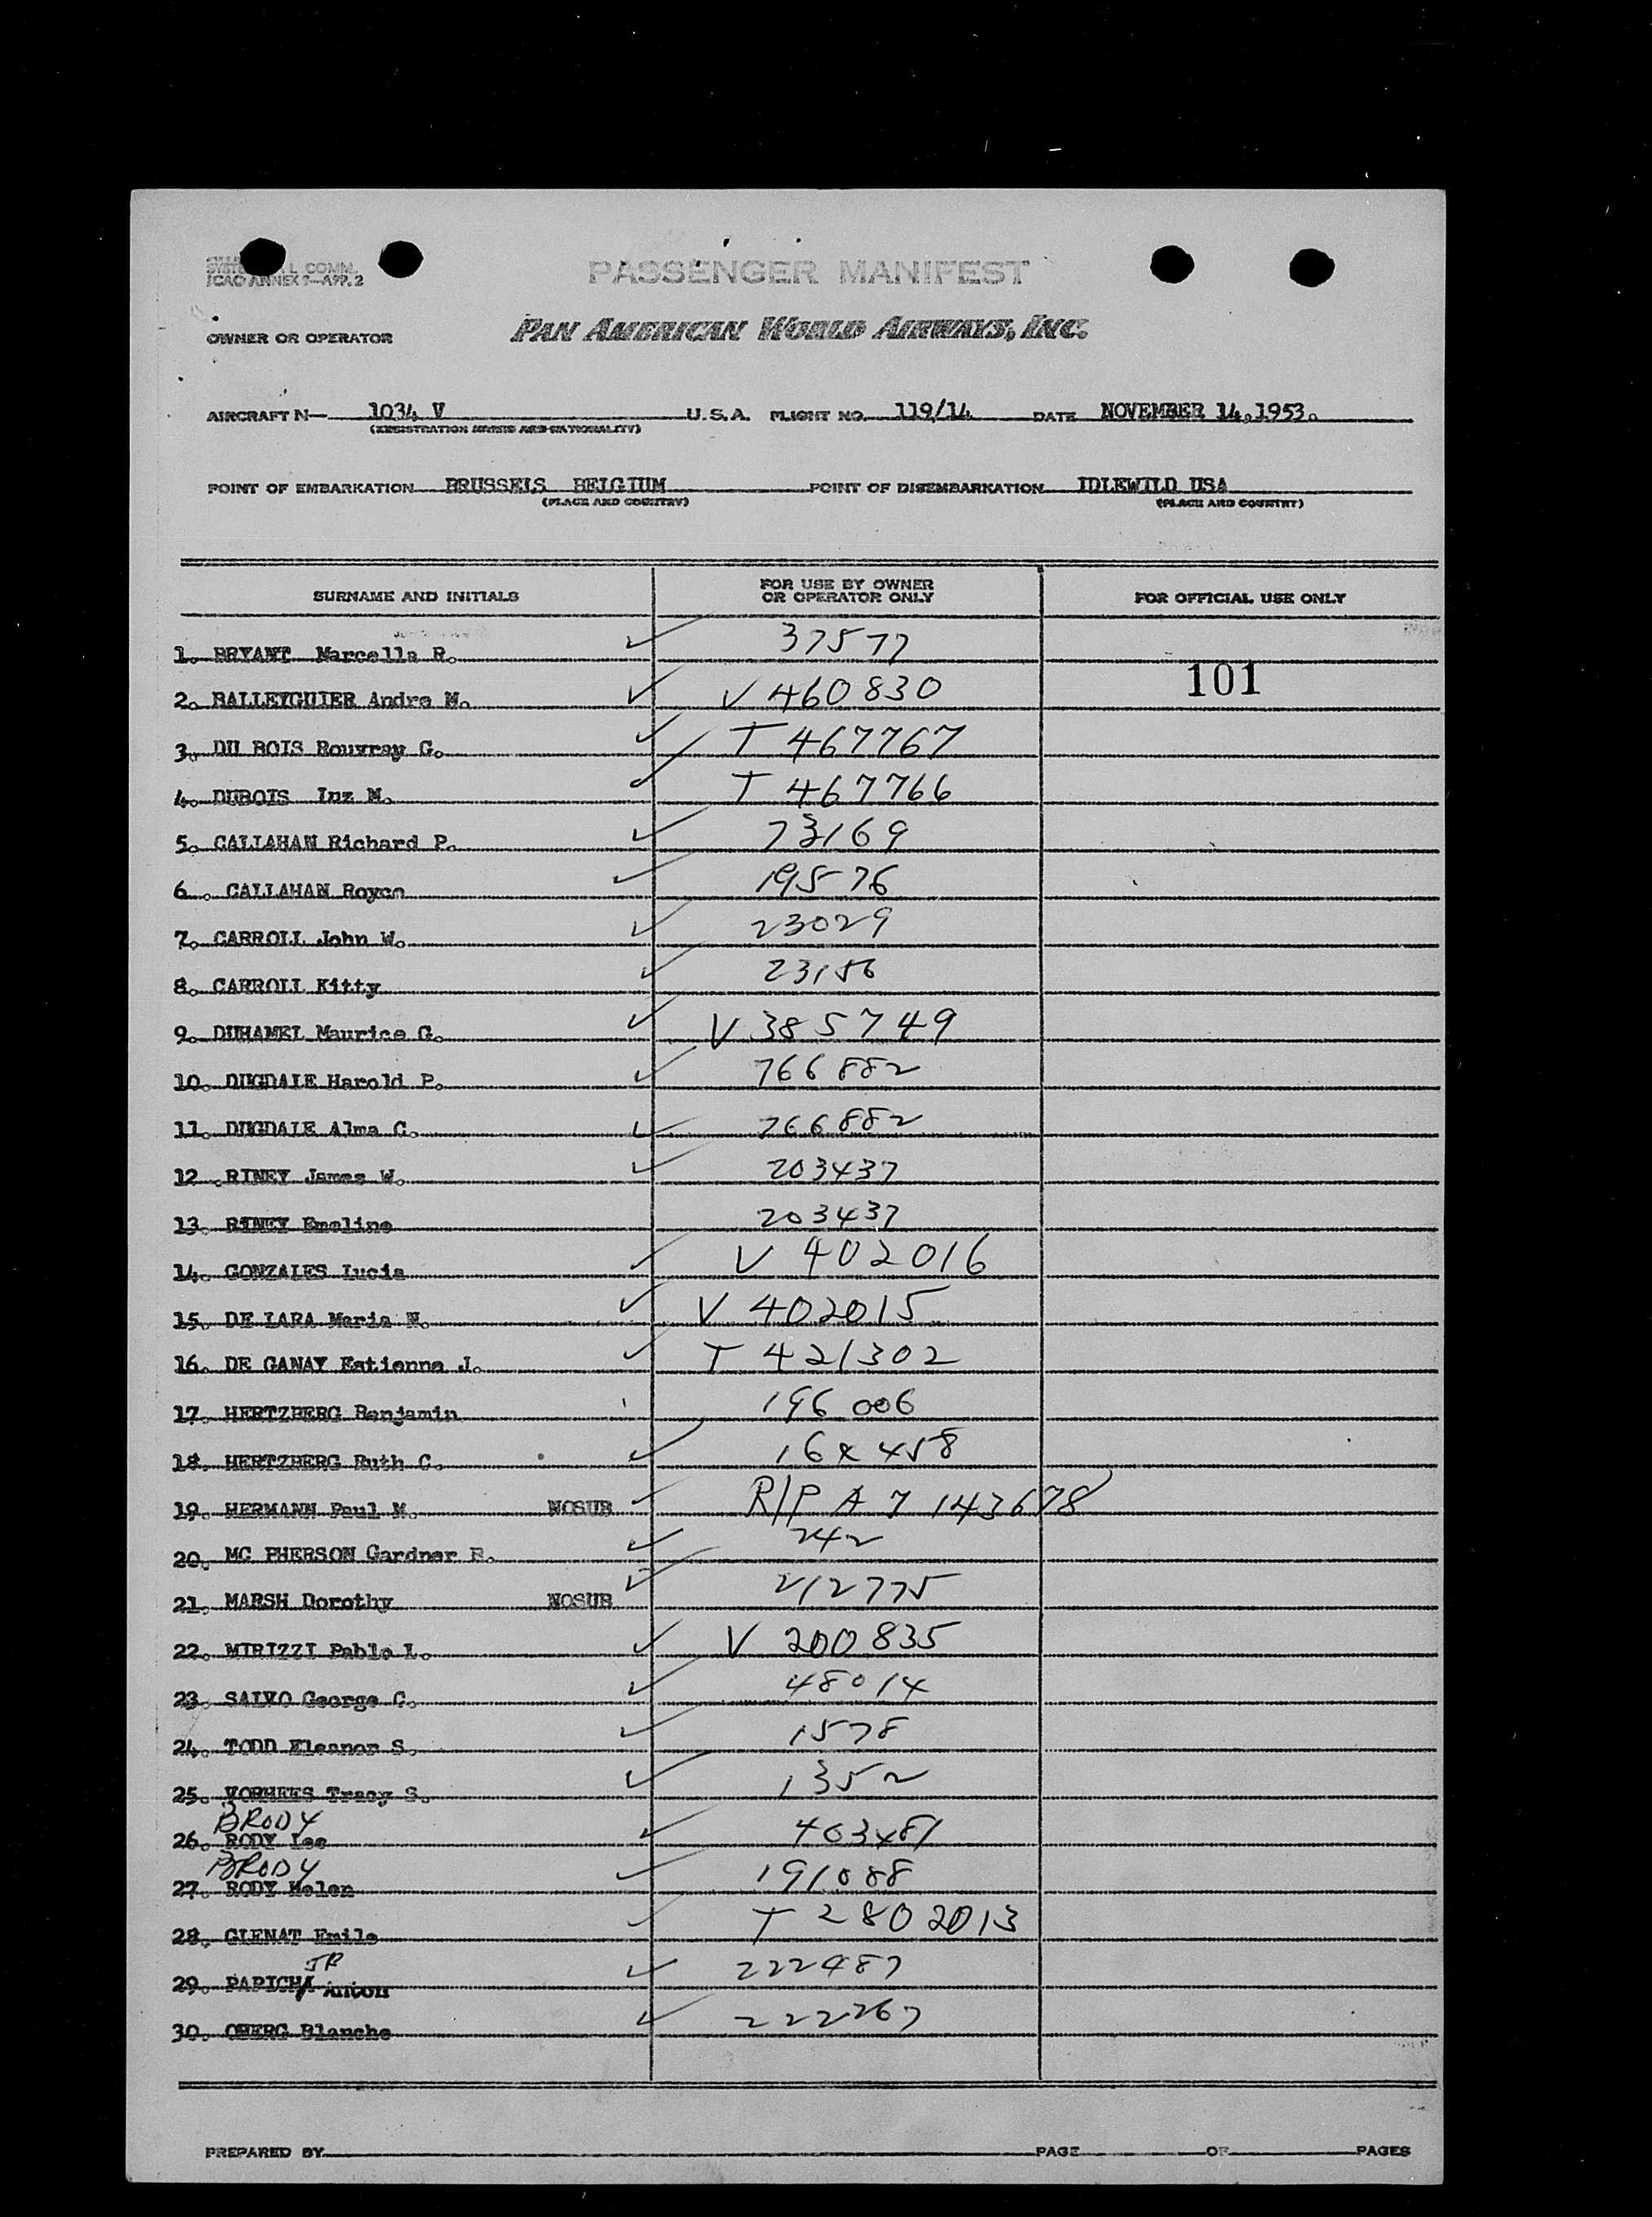 L COMM.
ICAO ANNEX 9—APP. 2
PASSENGER MANIFEST
OWNER OR OPERATOR PAN AMERICAN WORLD AIRWAYS, INC.
AIRCRAFT N— 1034 V U.S.A. FLIGHT NO. 119/14 DATE NOVEMBER 14,1953.
(REGISTRATION MARKS AND NATIONALITY)
POINT OF EMBARKATION BRUSSELS BELGIUM POINT OF DISEMBARKATION IDLEWILD USA
(PLACE AND COUNTRY) (PLACE AND COUNTRY)
SURNAME AND INITIALS FOR USE BY OWNER OR OPERATOR ONLY FOR OFFICIAL USE ONLY
1. BRYANT Marcella R. ✓ 37577
101
2. BALLEYGUIER Andre M. ✓ V 460830
3. DU BOIS Rouvray G. ✓ T 467767
4. DUBOIS Inz M. ✓ T 467766
5. CALLAHAN Richard P. ✓ 73169
6. CALLAHAN Royce ✓ 19576
7. CARROLL John W. ✓ 23029
8. CARROLL Kitty ✓ 23156
9. DUHAMEL Maurice G. ✓ V 385749
10. DUGDALE Harold P. ✓ 766882
11. DUGDALE Alma C. ✓ 766882
12. RINEY James W. ✓ 203437
13. RINEY Emeline 203437
14. GONZALES Lucia ✓ V 402016
15. DE LARA Maria N. ✓ V 402015
16. DE GANAY Estienne J. ✓ T 421302
17. HERTZBERG Benjamin 196006
18. HERTZBERG Ruth C. ✓ 164458
19. HERMANN Paul M. NOSUB ✓ R/P A 7 143678
20. MC PHERSON Gardner B. ✓ 242
21. MARSH Dorothy NOSUB ✓ 212775
22. MIRIZZI Pablo L. ✓ V 200835
23. SALVO George C. ✓ 48014
24. TODD Eleanor S. ✓ 1578
25. VORHEES Tracy S. ✓ 1352
BRODY
26. RODY Lee ✓ 403481
BRODY
27. RODY Helen ✓ 191088
28. GLENAT Emile ✓ T 2802013
JR
29. PAPICHA Anton ✓ 222487
30. OBERG Blanche ✓ 222267
PREPARED BY PAGE OF PAGES